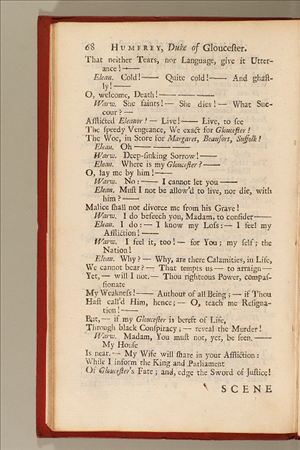 68 HUMFREY, Duke of Gloucester.
That neither Tears, nor Language, give it Utter-
ance! ——
Elean. Cold! —— Quite cold! —— And ghast-
ly! ——
O, welcome, Death! —— —— ——
Warw. She faints! — She dies! — What Suc-
cour? —
Afflicted Eleanor! — Live! —— Live, to see
The speedy Vengeance, We exact for Gloucester!
The Woe, in Store for Margaret, Beaufort, Suffolk!
Elean. Oh —— —— —— ——
Warw. Deep-sinking Sorrow! ——
Elean. Where is my Gloucester? ——
O, lay me by him! ——
Warw. No; —— I cannot let you ——
Elean. Must I not be allow'd to live, nor die, with
him? ——
Malice shall not divorce me from his Grave!
Warw. I do beseech you, Madam, to consider ——
Elean. I do: — I know my Loss; — I feel my
Affliction! ——
Warw. I feel it, too! — for You; my self; the
Nation!
Elean. Why? — Why, are there Calamities, in Life,
We cannot bear? — That tempts us — to arraign —
Yet, — will I not. — Thou righteous Power, compas-
sionate
My Weakness! —— Authour of all Being; — if Thou
Hast call'd Him, hence; — O, teach me Resigna-
tion! ——
But, — if my Gloucester is bereft of Life,
Through black Conspiracy; — reveal the Murder!
Warw. Madam, You must not, yet, be seen. ——
My House
Is near. — My Wife will share in your Affliction:
While I inform the King and Parliament
Of Gloucester's Fate; and, edge the Sword of Justice!
SCENE